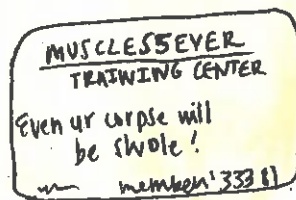 MUSCLES5EVER
TRAINING CENTER
Even ur corpse will
be swole!
member: 33381